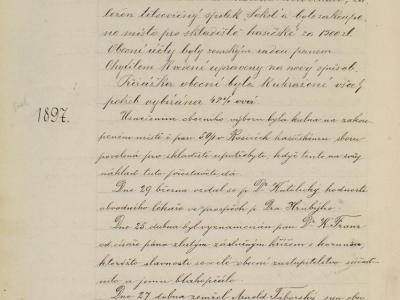 ležen tělocvičný spolek Sokol a bylo zakoupe-
no místo pro skladiště hasičské za 1500 zl.
Obecní účty byly zemským radou panem
vedení upraveny na nový způsob.
Přirážka obecní byla k uhrazení více
potřeb vybírána 42% ová.
1897.
Usnesením obecního výboru byla kolna na zakou-
peném místě hasičskému sboru
povolená pro skladiště když tento na svůj
náklad tuto přestavěti dá.
Dne 29 března vzdal se p. Dr. hodnosti
obvodního lékaře ve prospěch p. Dra.
Dne 25 dubna byl vyznamenán pan Dr. K. Franz
od císaře pána zlatým záslužným křížem s korunou,
kteréžto slavnosti se celé obecní zastupitelstvo súčast-
nilo a jemu blahopřálo.
Dne 27. dubna zemřel Arnold Táborský, syn obec